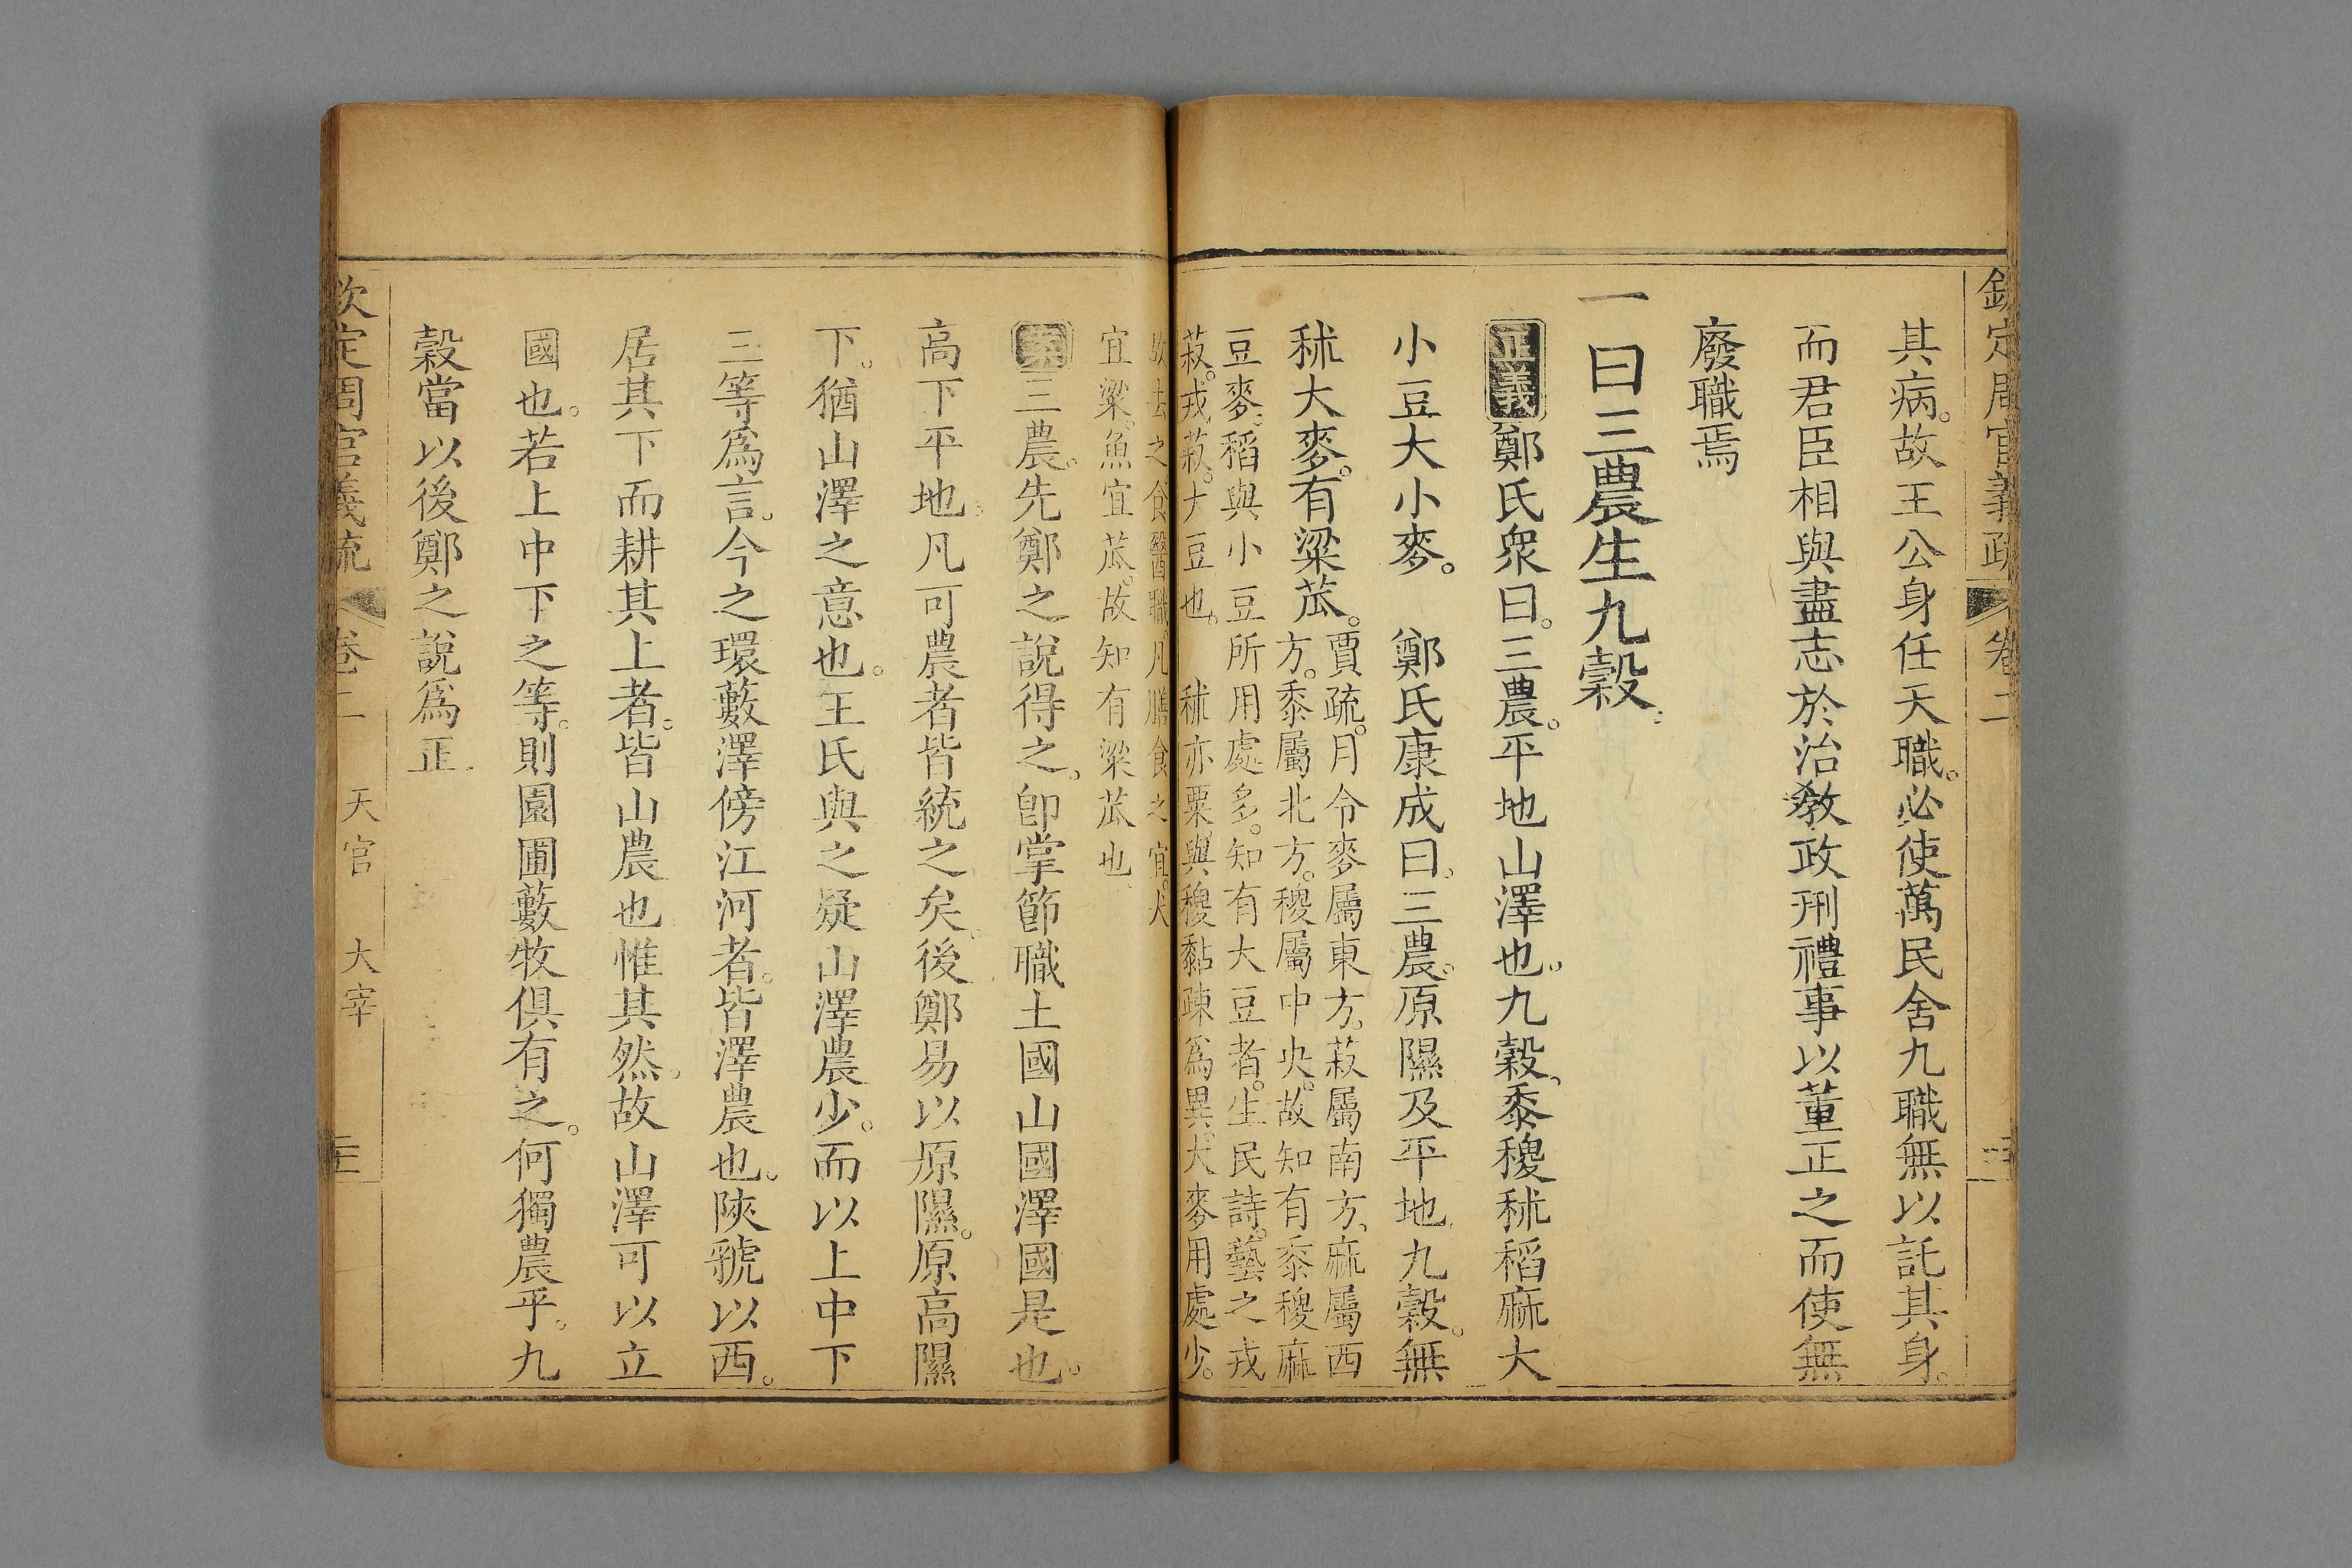 欽定周官義疏 卷二
其病。故王公身任天職。必使萬民舍九職無以託其身。
而君臣相與盡志於治教政刑禮事以董正之而使無
廢職焉
一曰三農生九穀
正義鄭氏衆曰。三農。平地山澤也。九穀。黍稷秫稻麻大
小豆大小麥。 鄭氏康成曰。三農。原隰及平地。九穀。無
秫大麥。有粱苽。
賈疏。月令麥屬東方。菽屬南方、麻屬西
方。黍屬北方。稷屬中央。故知有黍稷麻
豆麥。稻與小豆所用處多。知有大豆者。生民詩。藝之戎
菽。戎菽。大豆也。 秫亦粟。與稷黏疎爲異。大麥用處少。
故去之。食醫職。凡膳食之宜。犬
宜粱。魚宜苽。故知有粱苽也
案三農。先鄭之說得之。卽掌節職土國山國澤國是也。
高下平地。凡可農者皆統之矣。後鄭易以原隰。原高隰
下。猶山澤之意也。王氏與之疑山澤農少。而以上中下
三等爲言。今之環藪澤傍江河者。皆澤農也。陜虢以西。
居其下而耕其上者。皆山農也惟其然。故山澤可以立
國也。若上中下之等。則園圃藪牧俱有之。何獨農乎。九
穀當以後鄭之說爲正
欽定周官義疏 卷二 天官 大宰